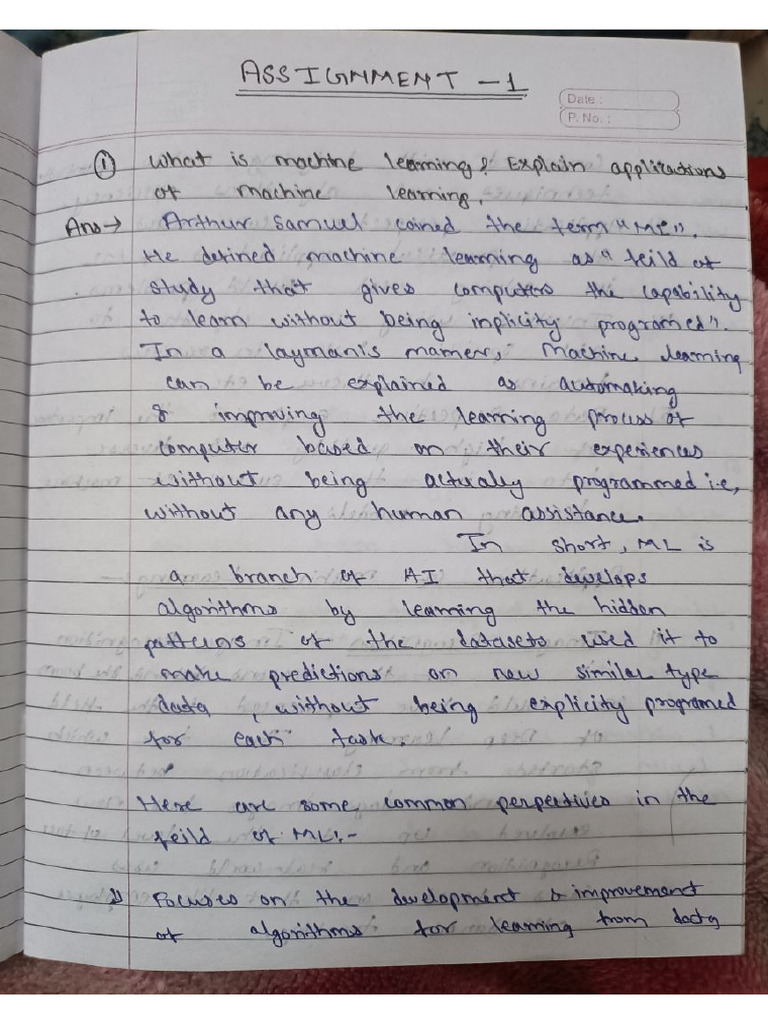 ASSIGNMENT - 1
Date :
P. No. :
① What is machine learning? Explain applications
of machine learning.
Ans → Arthur Samuel coined the term "ML".
He defined machine learning as "feild of
study that gives computers the capability
to learn without being inplicity programed".
In a layman's manner, Machine learning
can be explained as automaking
& improving the learning process of
computer based on their experiences
without being actually programmed i.e,
without any human assistance.
In short, ML is
a branch of AI that develops
algorithms by learning the hidden
patterns of the datasets used it to
make predictions on new similar type
data, without being explicity programed
for each task.
Here are some common perpectives in the
feild of ML:-
1) Focuses on the development & improvement
of algorithms for learning from data